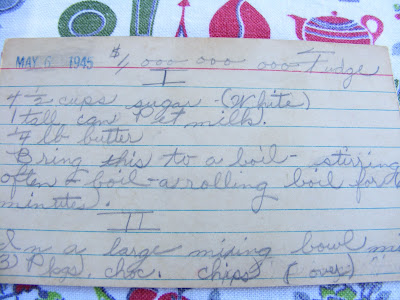 MAY 6 1945 $1,000 000 000 Fudge
I
4 1/2 cups sugar (White)
1 tall can Pet milk.
1/4 lb butter
Bring this to a boil - stirring
often - boil - a rolling boil for
minutes).
II
In a large mixing bowl mi
3) Pkgs. choc. chips (over)